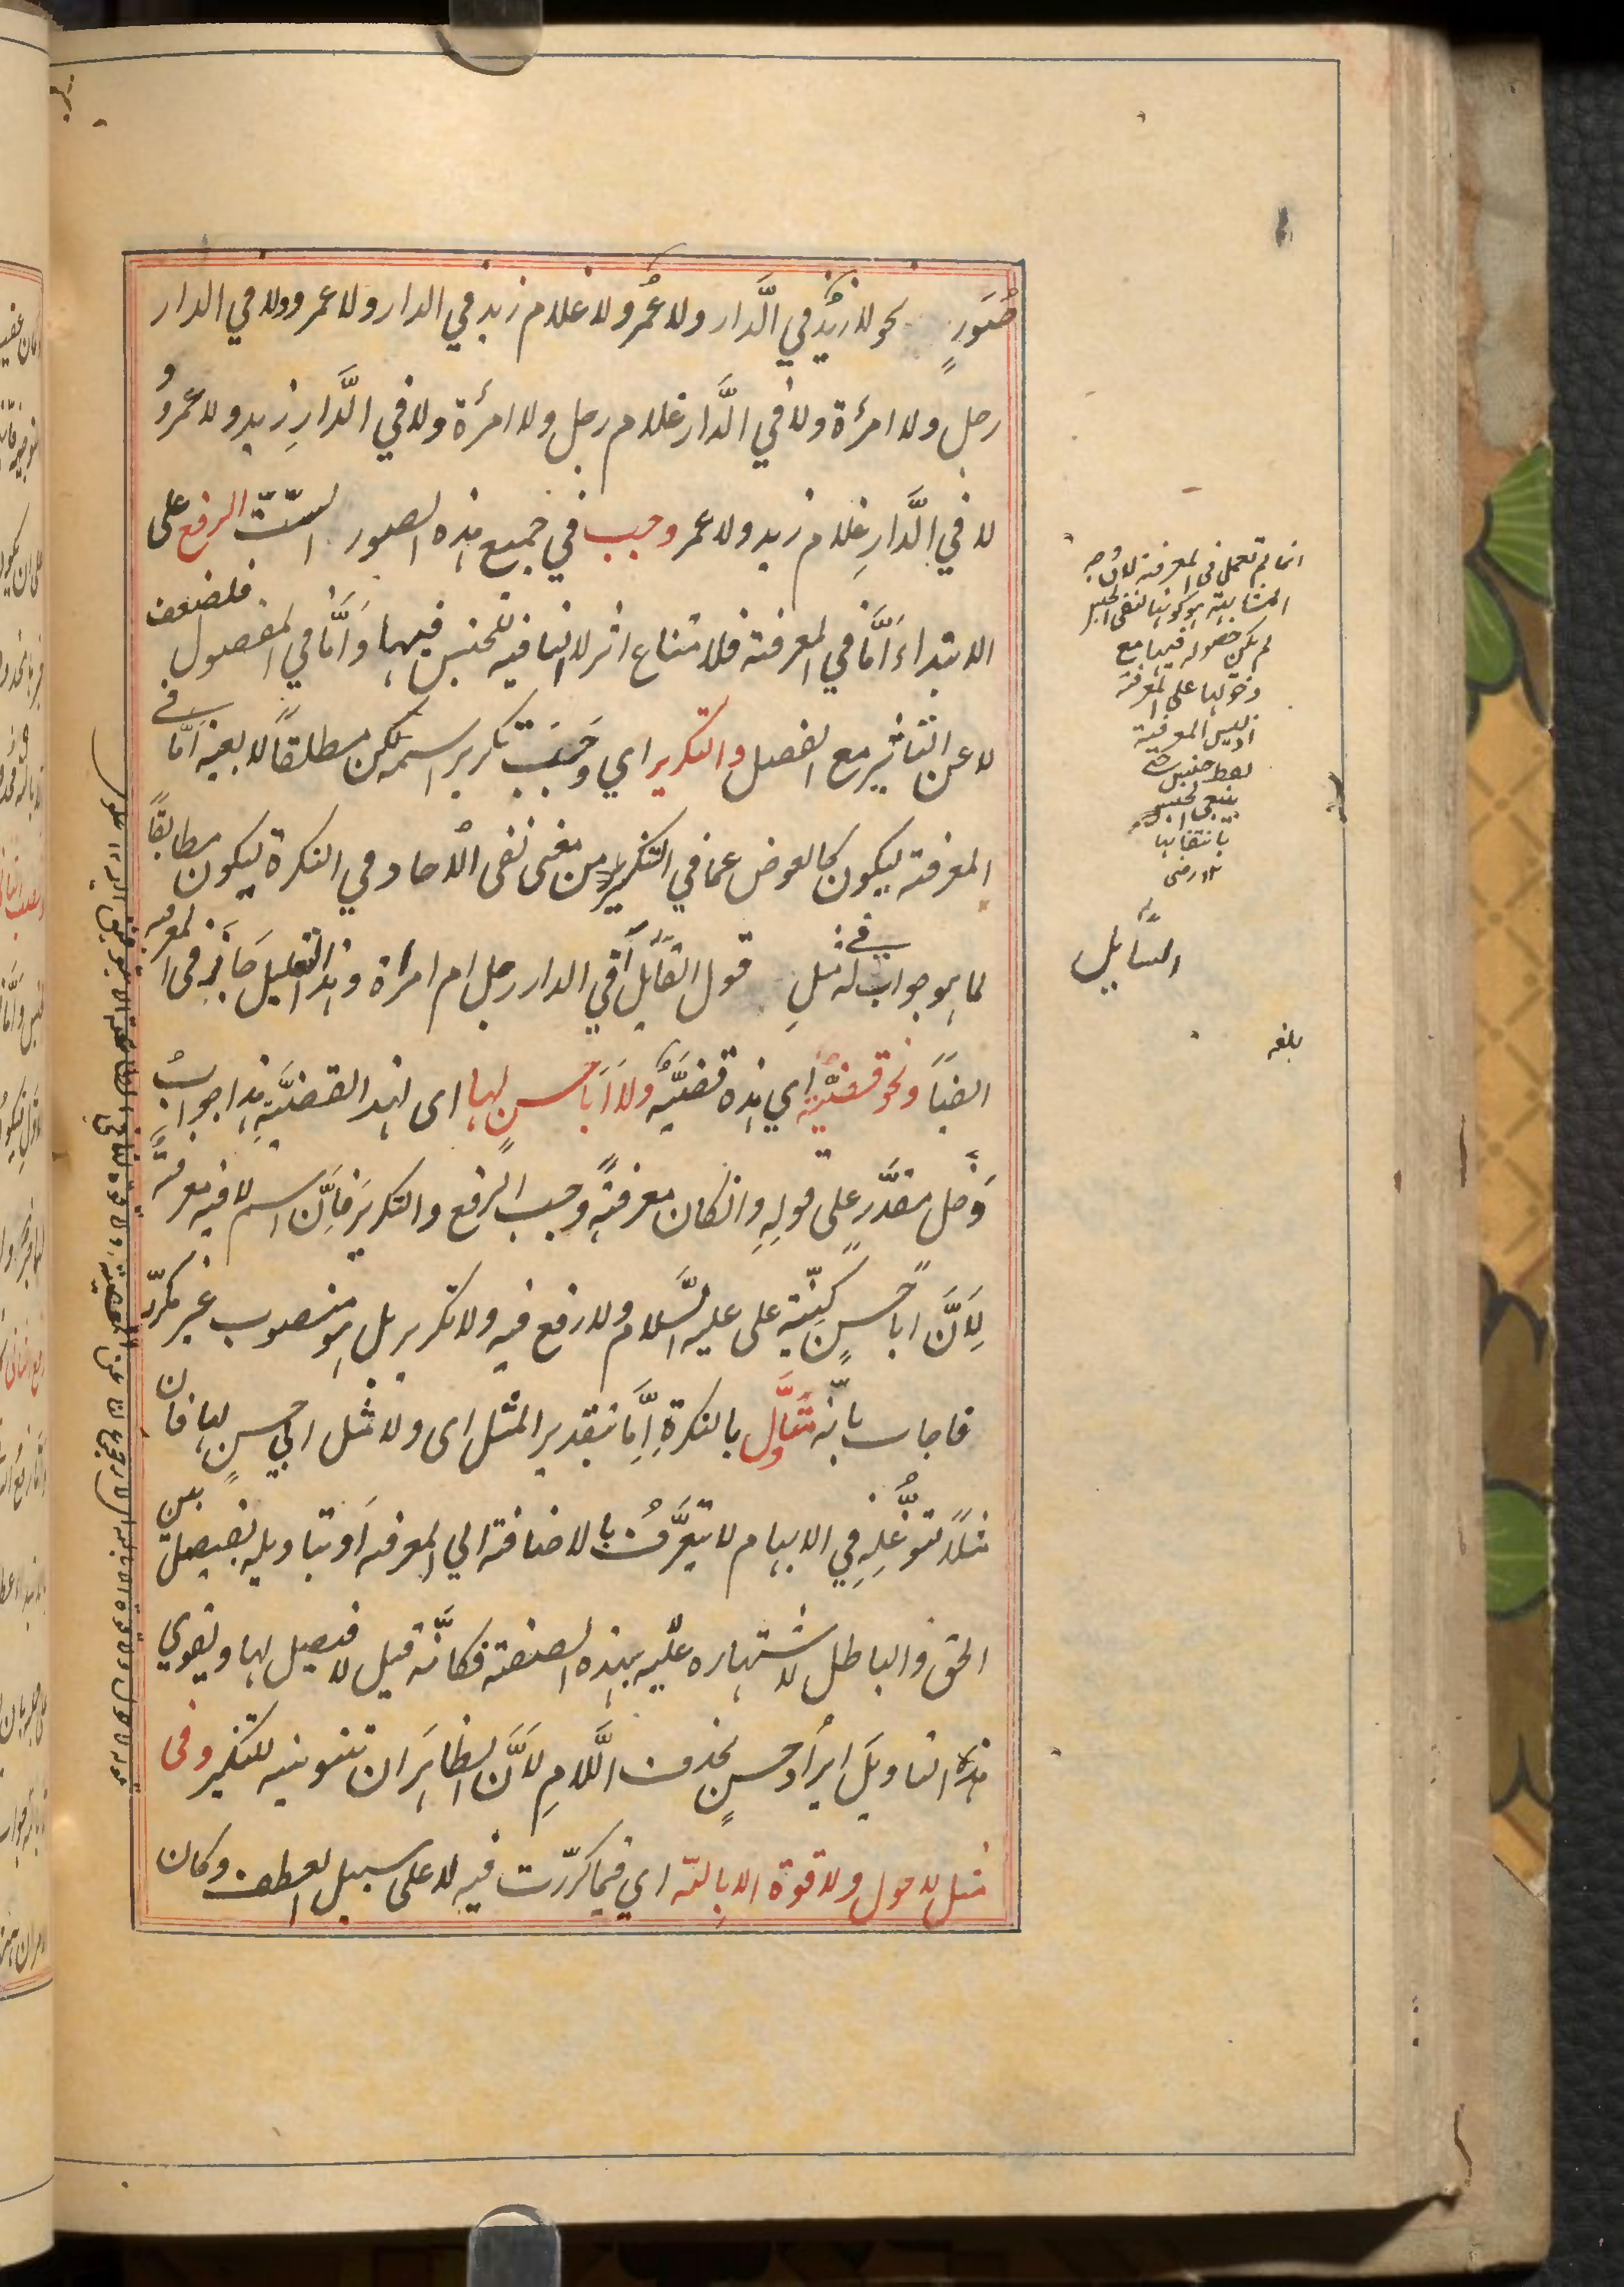 صُوَرٍ نحو لا زيدٌ في الَّدار ولا عمُرو ولا غلام زيد في الدار ولا عمرو ولا في الدار
رجل ولا امرأة ولا في الَّدار غلام رجل ولا امرأة ولا في الَّدارِ زيد ولا عمروُ و
لا في الَّدارِ غلام زيد ولا عمر وجب في جميع هذه الصور الستّ الرفع على
الابتداءَ اَمَّا في المعرفة فلامتناع اثر لا النافيه للجنس فيها وَاَمَّا في المفصول فلضعف
لا عن التاثير مع الفصل والتكرير اي وَجَبَت تكرير اسمه لكن مطلقاً لا بعينه اَمَّا في
المعرفة ليكون كالعوض عما في التنكير من معنى نفى الُاحاد وفي النكرة ليكون مطابقاً
لما هو جواب له في مثلِ قول القاَئل اَفي الدار رجل ام امراة وهذا التعليل جَارٍ في المعرفة
ايضاً ونحو قضيَّة اي هذه قضيَّة ولا اَبا حسنٍ لها اى لهذ القضيَّةِ هذا جوابُ
دَخل مقدَّر على قولِهِ وان كان معرفةً وجب الرفع والتكرير فاِنَّ اسم لا فيه معرفةً
لِاَنَّ ابا حسنٍ كنّية على عليه السَّلام ولا رفع فيه ولا تكرير بل هو منصوب غير مكرّر
فاجاب بانّه متأوَّل بالنكرةِ اِمَّا بتقدير المثل اى ولا مثل ابي حسنٍ لها فان
مثلاً لتوغُّلِهِ في الابهام لا يتعَرَّفُ بالاضافة الي المعرفه اَو بتاويله بفيصل بين
الحق والباطل لاشتهاره عليه بهذه الصفة فكانَّه قيل لا فيصل لها ويقوي
هذه التاويل ايراُد حسنٍ بحذف اللَّامِ لاَنَّ الظاهَر ان تنوينه للتنكير وفى
مثل لا حول ولا قوة الا بالله اي فيما كرّرت فيه لا على سبيل العطف وكان
انما لم تعمل في المعرفة لان وجه
المشابهة هو كونها لنفى الجنس
لم يمكن حصوله فيها مع
دخولها على المعرفة
اذ ليس المعرفة
لفظ جنس حتى
ينتفى الجنس
بانتفائها
رضى
السَّايل
بلغه